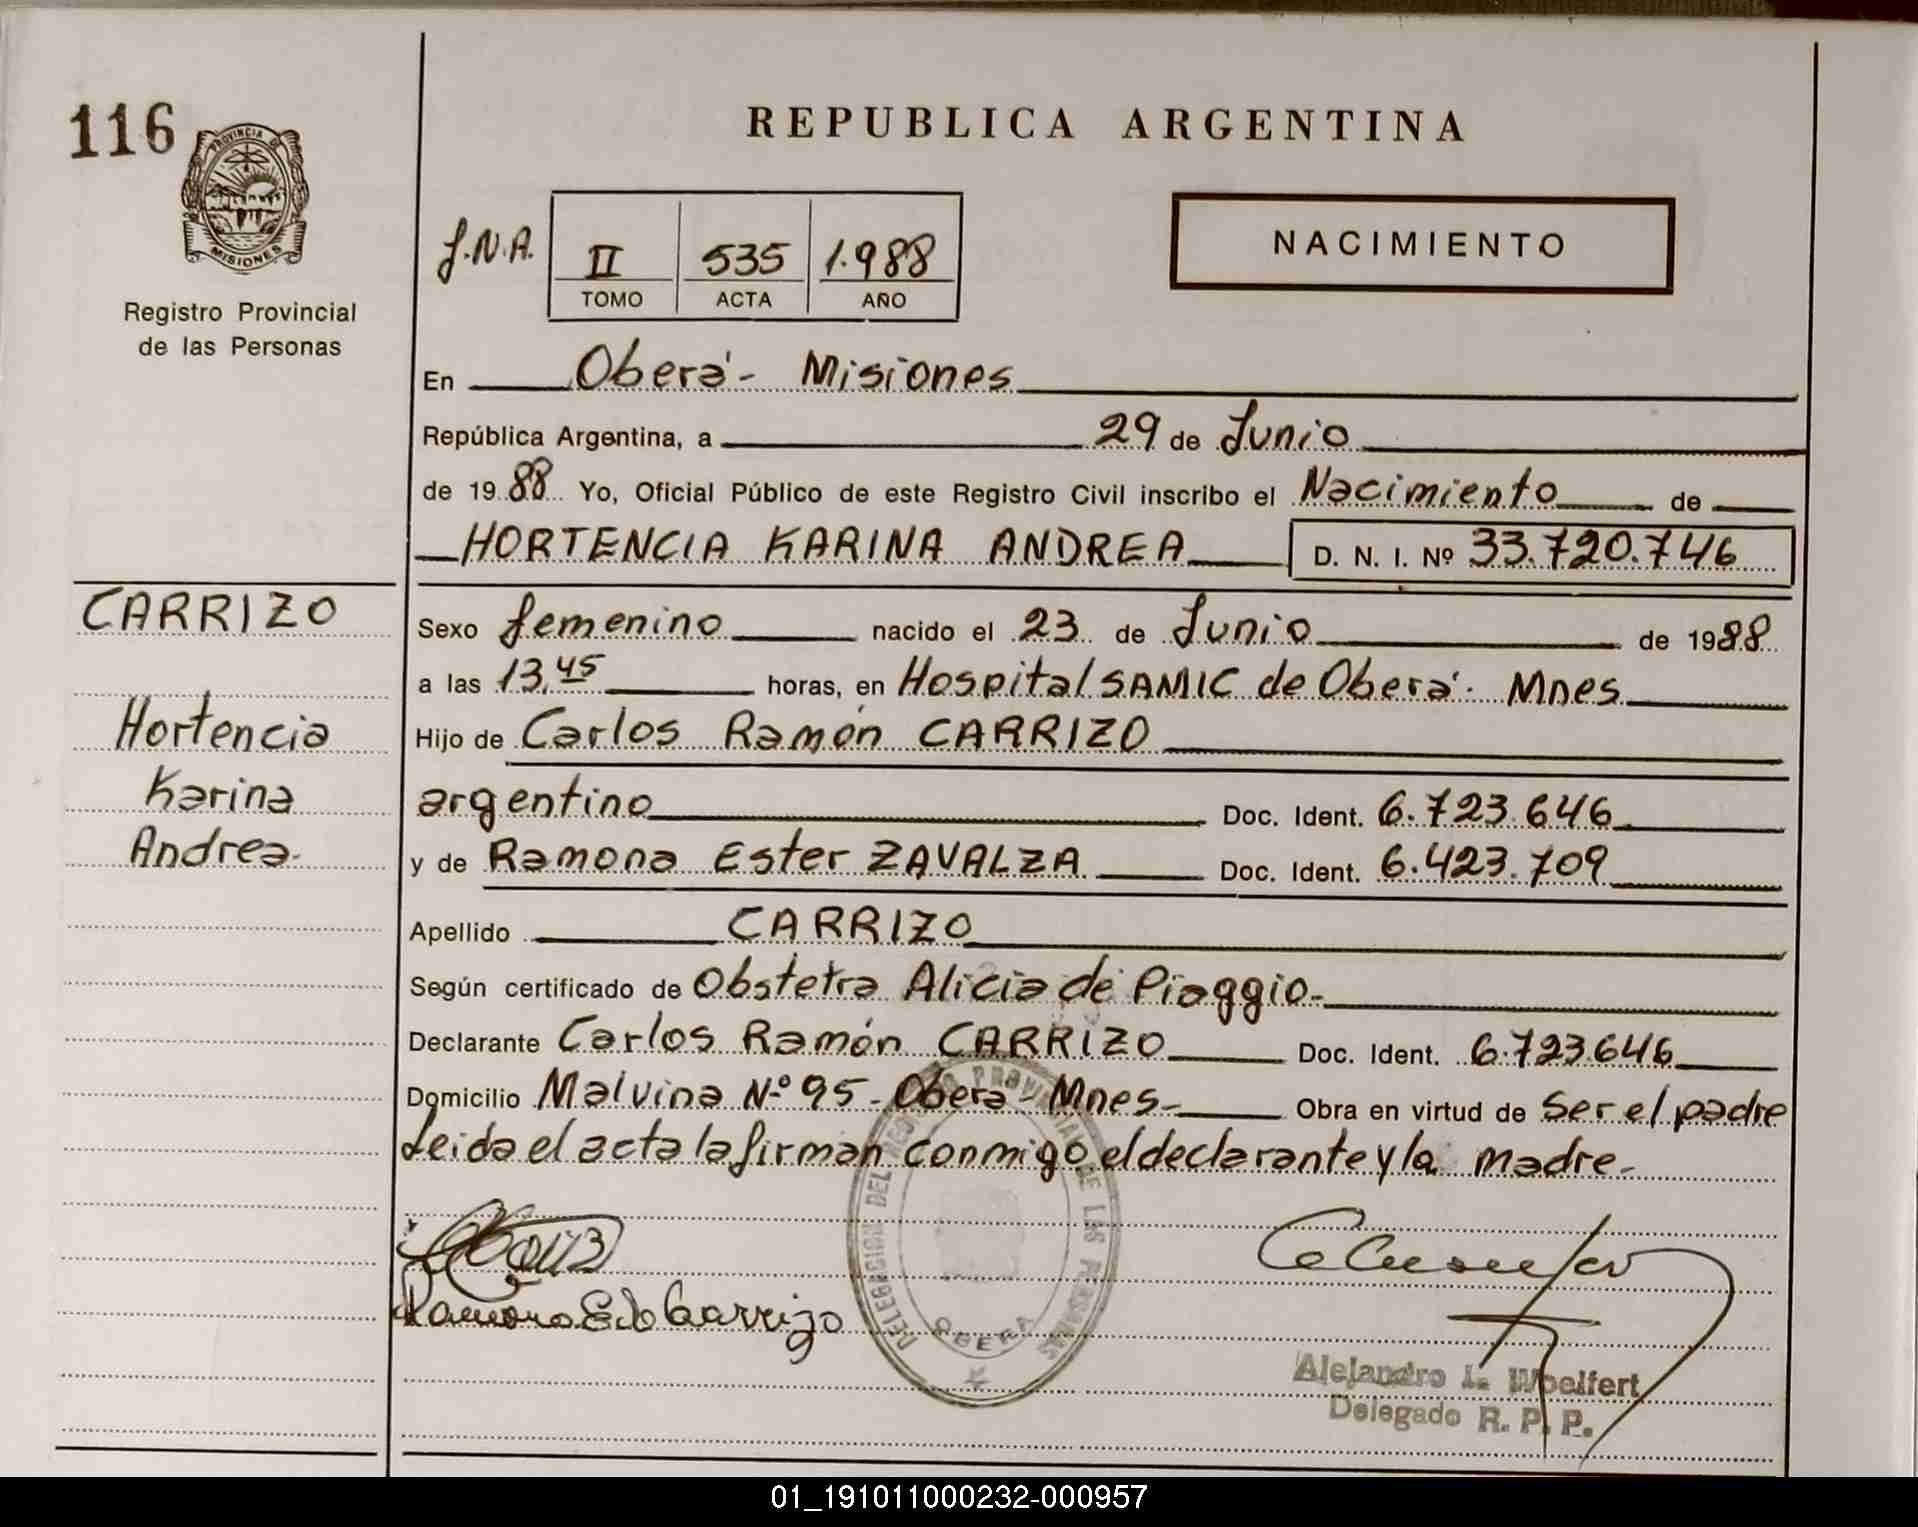 116
PROVINCIA DE
MISIONES
Registro Provincial
de las Personas
REPUBLICA ARGENTINA
J.N.A.
II 535 1.988
TOMO ACTA AÑO
NACIMIENTO
En Oberá - Misiones
República Argentina, a 29 de Junio
de 1988 Yo, Oficial Público de este Registro Civil inscribo el Nacimiento de
HORTENCIA KARINA ANDREA D. N. I. Nº 33.720.746
CARRIZO
Hortencia
Karina
Andrea.
Sexo femenino nacido el 23 de Junio de 1988
a las 13,45 horas, en Hospital SAMIC de Oberá - Mnes
Hijo de Carlos Ramón CARRIZO
argentino Doc. Ident. 6.723.646
y de Ramona Ester ZAVALZA Doc. Ident. 6.423.709
Apellido CARRIZO
Según certificado de Obstetra Alicia de Piaggio-
Declarante Carlos Ramón CARRIZO Doc. Ident. 6.723.646
Domicilio Malvina Nº 95 - Obera - Mnes - Obra en virtud de ser el padre
Leida el acta la firman conmigo el declarante y la madre.
Ramona E. de Carrizo
DELEGACION DEL REGISTRO PROVINCIAL DE LAS PERSONAS
OBERA
Alejandro L. Woelfert
Delegado R. P. P.
01_191011000232-000957